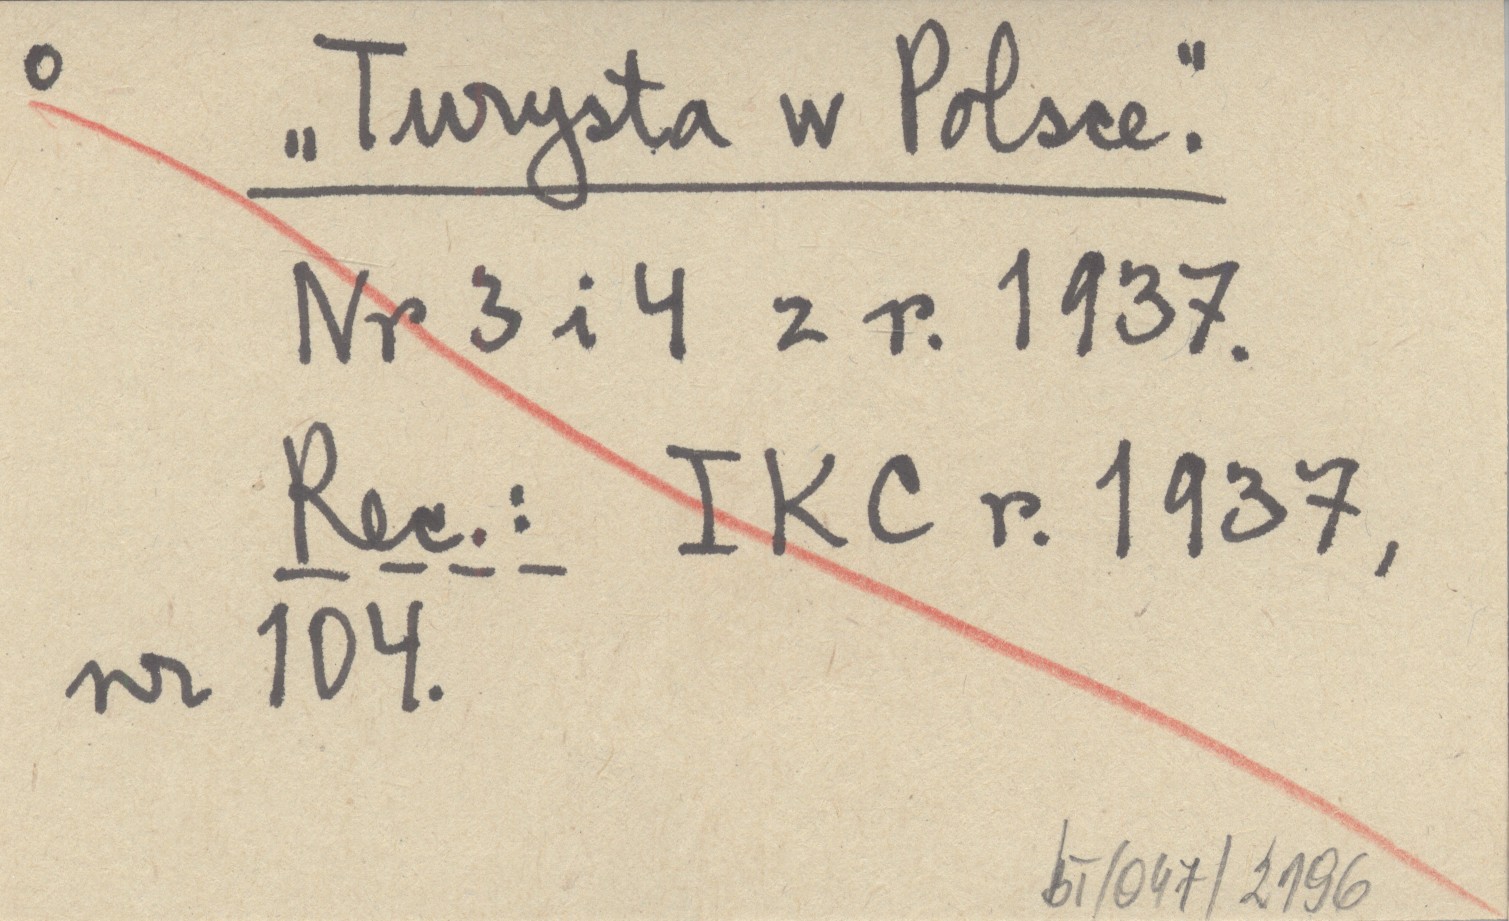 o
„Turysta w Polsce."
Nr 3 i 4 z r. 1937.
Rec.: IKC r. 1937,
nr 104.
bI/047/2196